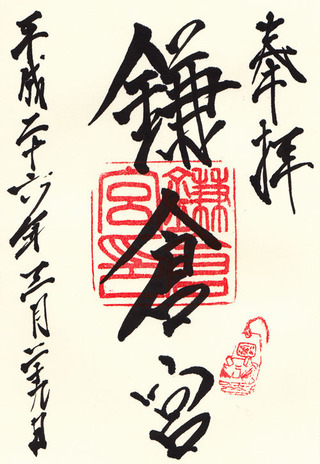 奉拝
鎌倉宮
鎌倉宮印
平成二十六年三月二十九日